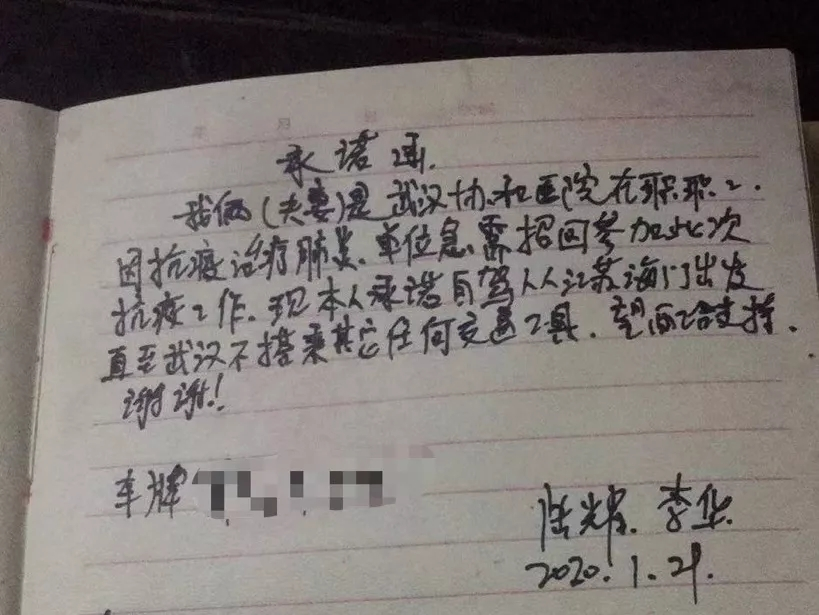 年 月 日
承诺函.
我俩(夫妻)是武汉协和医院在职职工.
因抗疫治疗肺炎.单位急需招回参加此次
抗疫工作.现本人承诺自驾从江苏海门出发
直至武汉不搭乘其它任何交通工具.望给支持.
谢谢!
车牌
陆耀.李华.
2020.1.29.